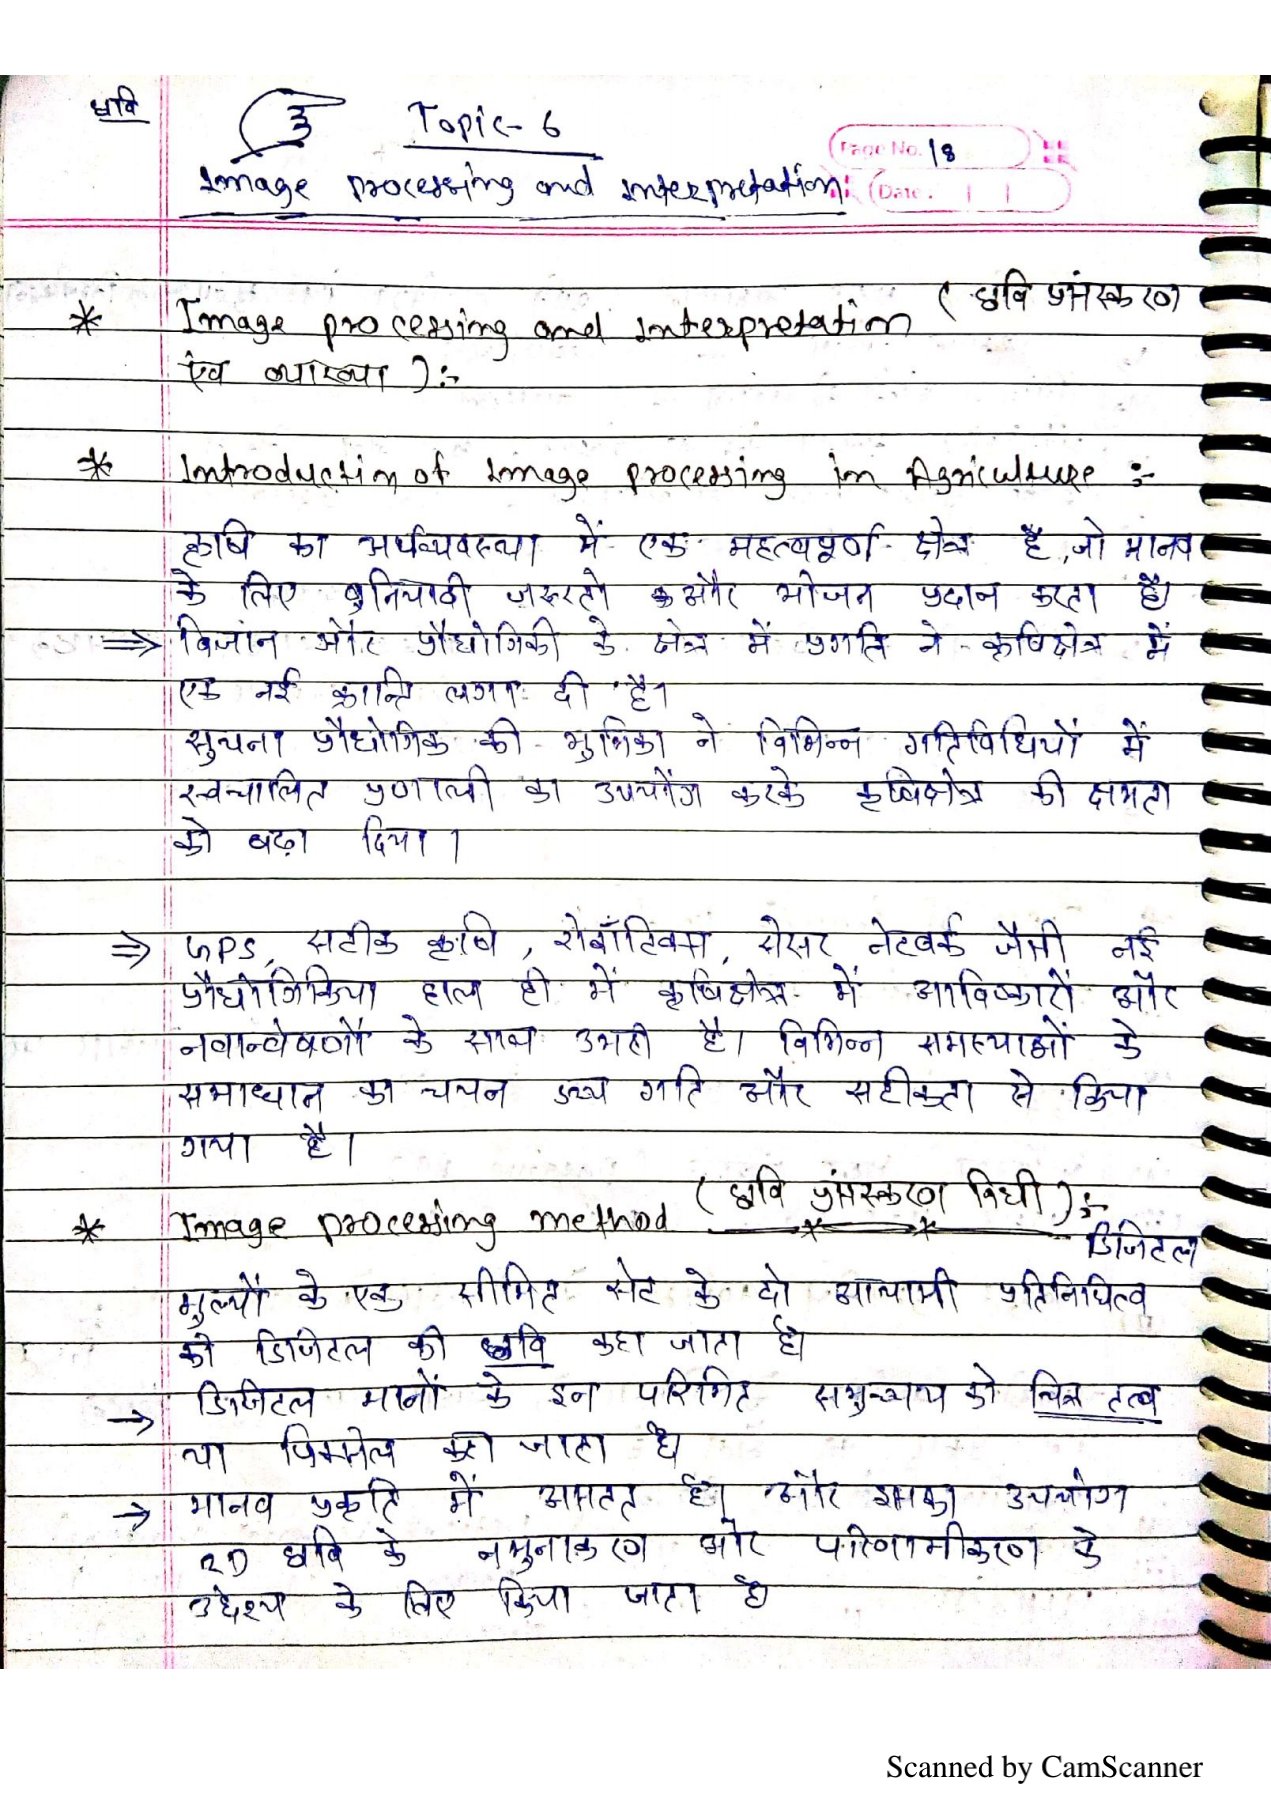 छवि
Topic- 6
Page No. 18
Image processing and interpretation:
Date.
* Image processing and interpretation (छवि प्रसंस्करण
एंव व्याख्या ):-
* Introduction of Image processing in Agriculture :-
कृषि का अर्थव्यवस्था में एक महत्वपूर्ण क्षेत्र है, जो मानव
के लिए बुनियादी जरूरतो और भोजन प्रदान करता है।
⇒ विज्ञान और प्रौद्योगिकी के क्षेत्र में प्रगति ने कृषिक्षेत्र में
एक नई क्रान्ति दी है।
सुचना प्रौद्योगिक की भुमिका ने विभिन्न गतिविधियों में
स्वचालित प्रणाली का उपयोग करके कृषिक्षेत्र की क्षमता
को बढ़ा दिया।
⇒ GPS, सटीक कृषि, रोबॉटिक्स, सेंसर नेटवर्क जैसी नई
प्रौद्योगिकिया हाल ही में कृषिक्षेत्र में आविष्कारों और
नवान्वेषणों के साथ उभरी है। विभिन्न समस्याओं के
समाधान का चयन उच्च गति और सटीकता से किया
गया है।
* Image processing method (छवि प्रसंस्करण विधी):-
डिजिटल
मुल्यों के एक सीमित सेट के दो आयामी प्रतिनिधित्व
को डिजिटल की छवि कहा जाता है।
→ डिजिटल मानों के इन परिमित समुच्चय को चित्र तत्व
या पिक्सेल कहा जाता है।
→ मानव प्रकृति में सतत है। और इसका उपयोग
2D छवि के नमुनाकरण और परिणामीकरण के
उद्देश्य के लिए किया जाता है
Scanned by CamScanner